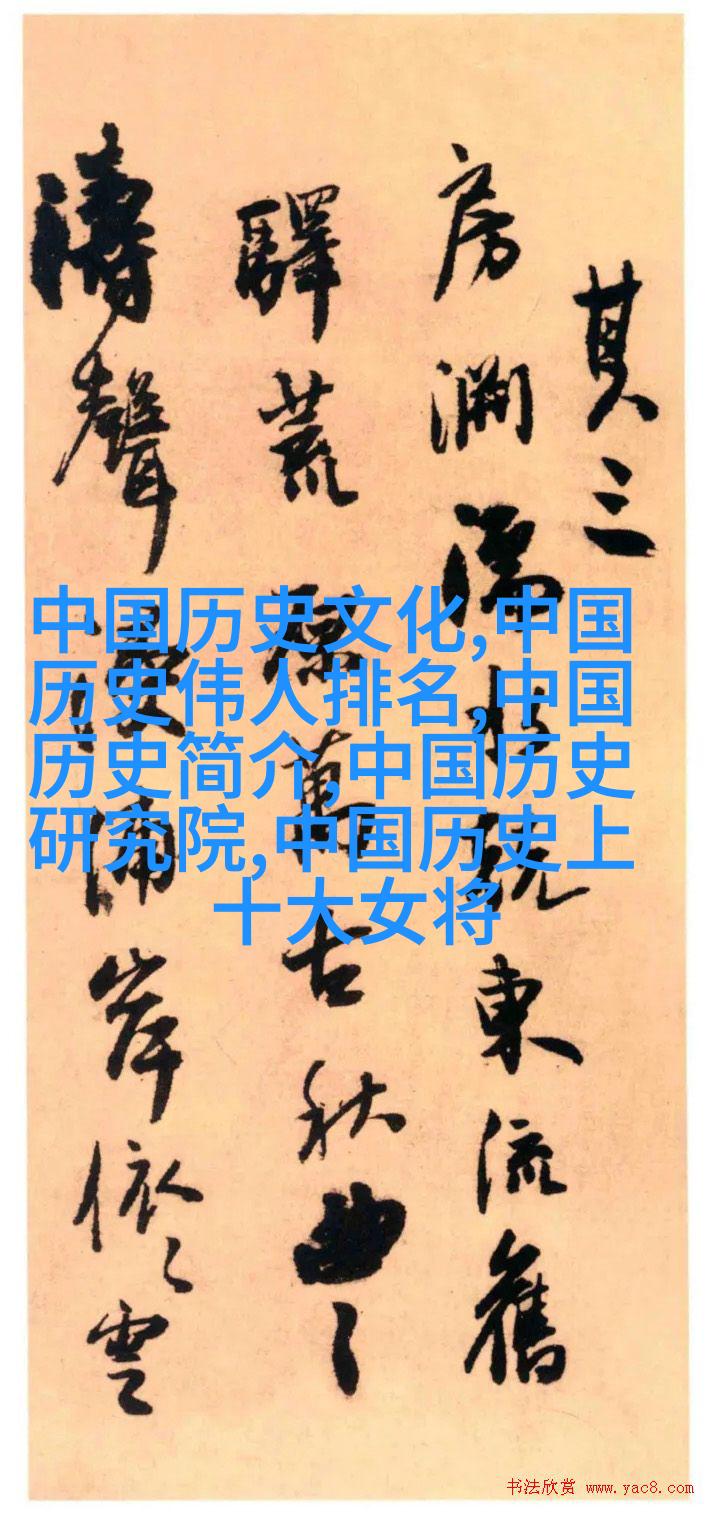 其三
房濡水東流舊
驛荒萬古秋曲〻
濤聲岸依〻雲
中国历史文化,中国
历史伟人排名,中国
历史简介,中国历史
研究院,中国历史上
十大女将
书法欣赏 www.yac8.com